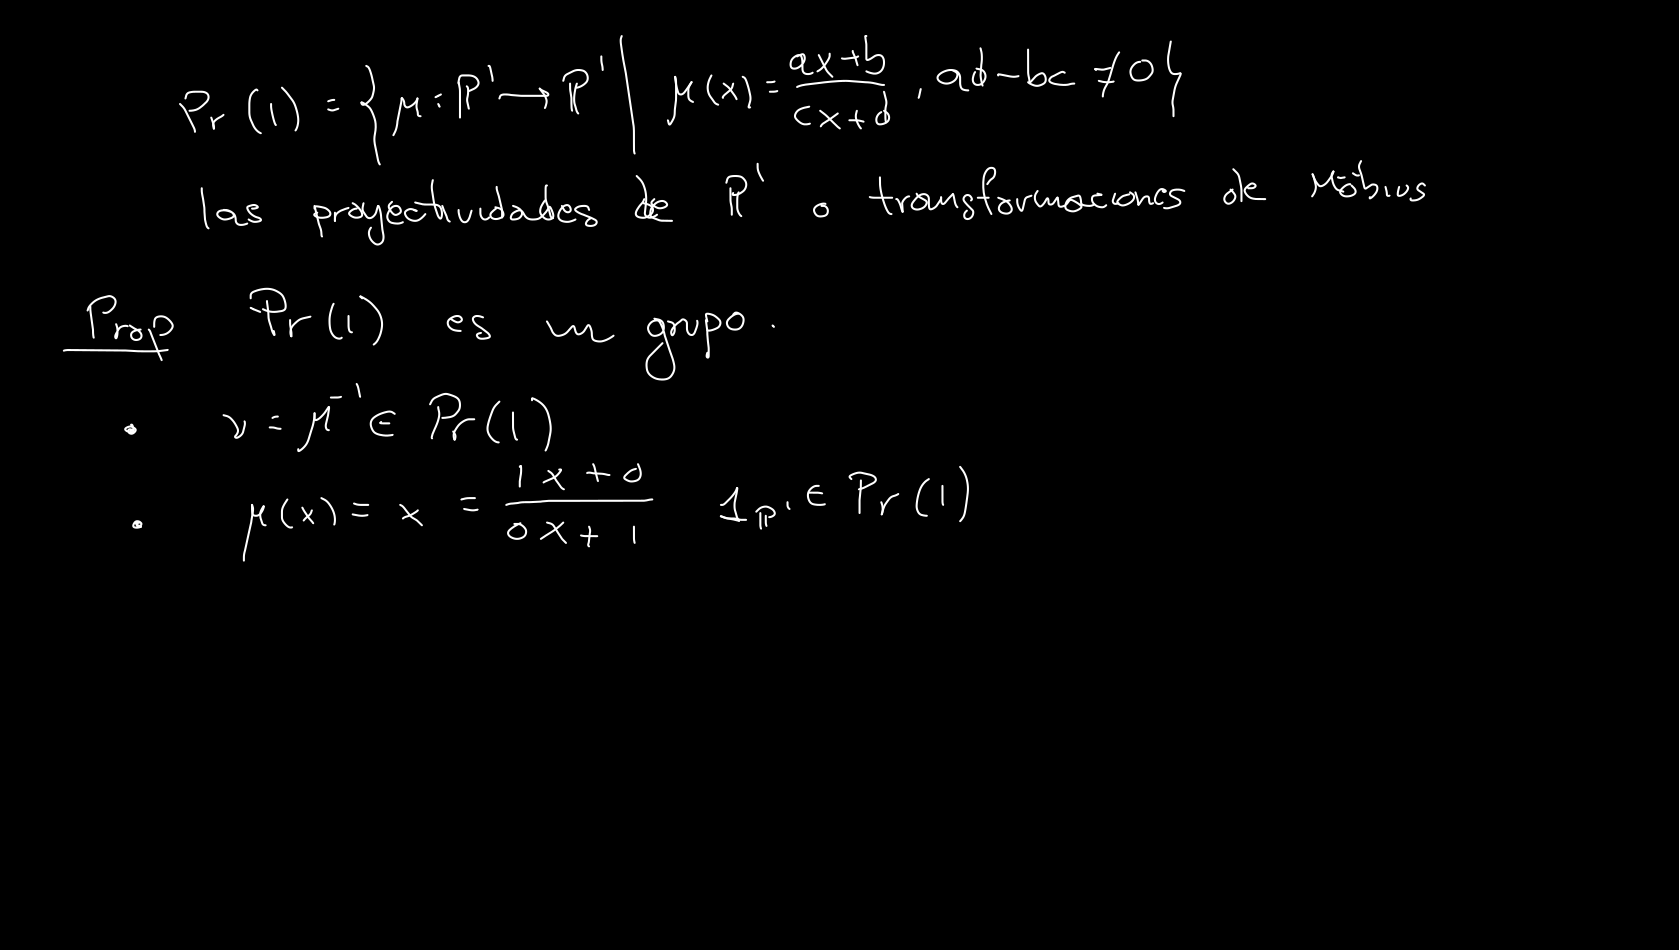 Pr(1) = { μ : ℙ¹ → ℙ¹ | μ(x) = (ax+b)/(cx+d) , ad-bc ≠ 0 }
las proyectividades de ℙ¹ o transformaciones de Möbius
Prop Pr(1) es un grupo.
• ν = μ⁻¹ ∈ Pr(1)
• μ(x) = x = (1x+0)/(0x+1) 1_ℙ¹ ∈ Pr(1)